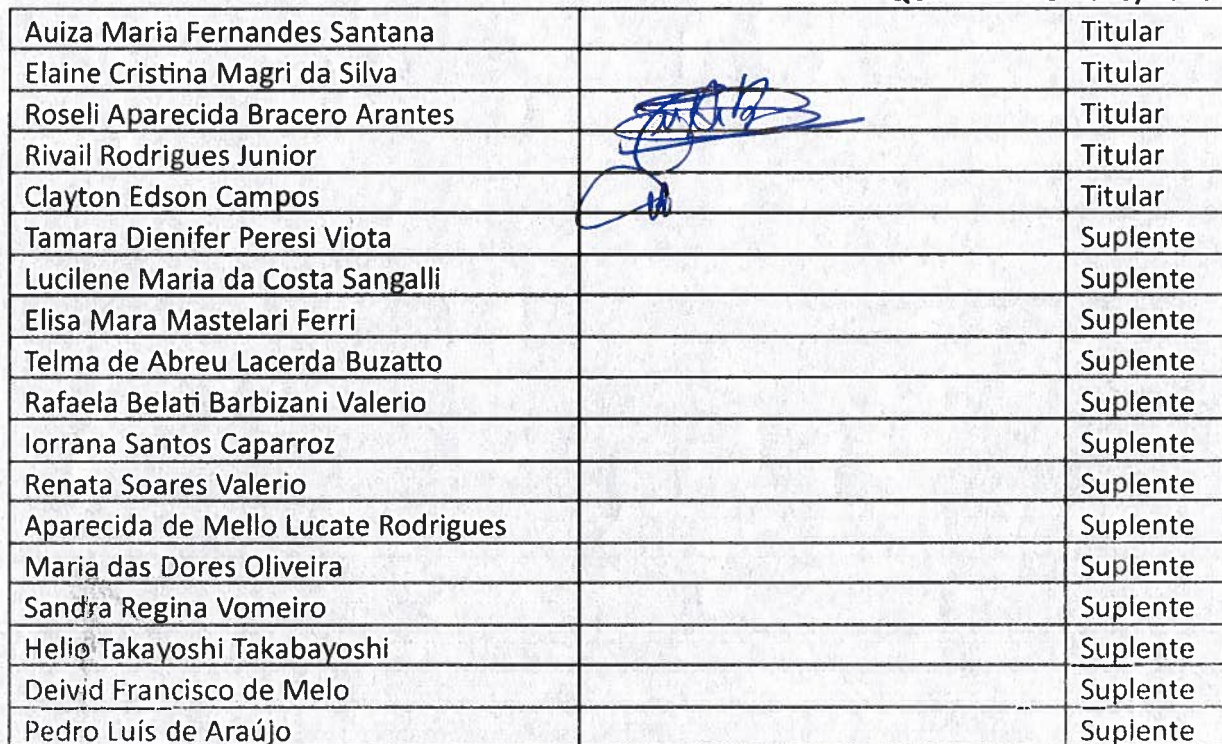 Auiza Maria Fernandes Santana Titular
Elaine Cristina Magri da Silva Titular
Roseli Aparecida Bracero Arantes Titular
Rivail Rodrigues Junior Titular
Clayton Edson Campos Titular
Tamara Dienifer Peresi Viota Suplente
Lucilene Maria da Costa Sangalli Suplente
Elisa Mara Mastelari Ferri Suplente
Telma de Abreu Lacerda Buzatto Suplente
Rafaela Belati Barbizani Valerio Suplente
Iorrana Santos Caparroz Suplente
Renata Soares Valerio Suplente
Aparecida de Mello Lucate Rodrigues Suplente
Maria das Dores Oliveira Suplente
Sandra Regina Vomeiro Suplente
Helio Takayoshi Takabayoshi Suplente
Deivid Francisco de Melo Suplente
Pedro Luís de Araújo Suplente